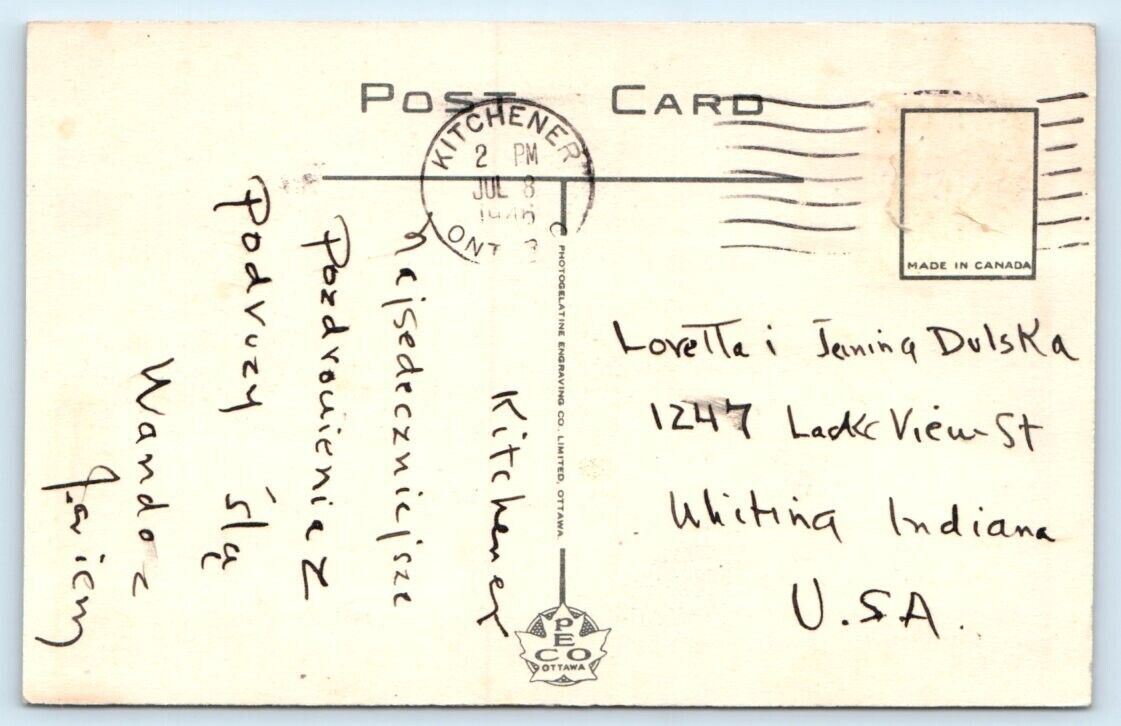 POST CARD
KITCHENER
2 PM
JUL 8
1946
ONT
MADE IN CANADA
Kitchener
najsedeczniejsze
Pozdrowienia z
Podruzy ślą
Wanda z
PHOTOGELATINE ENGRAVING CO. LIMITED, OTTAWA
PECO
OTTAWA
Loretta i Janina Dulska
1247 Lacke View St
Whiting Indiana
U.S.A.